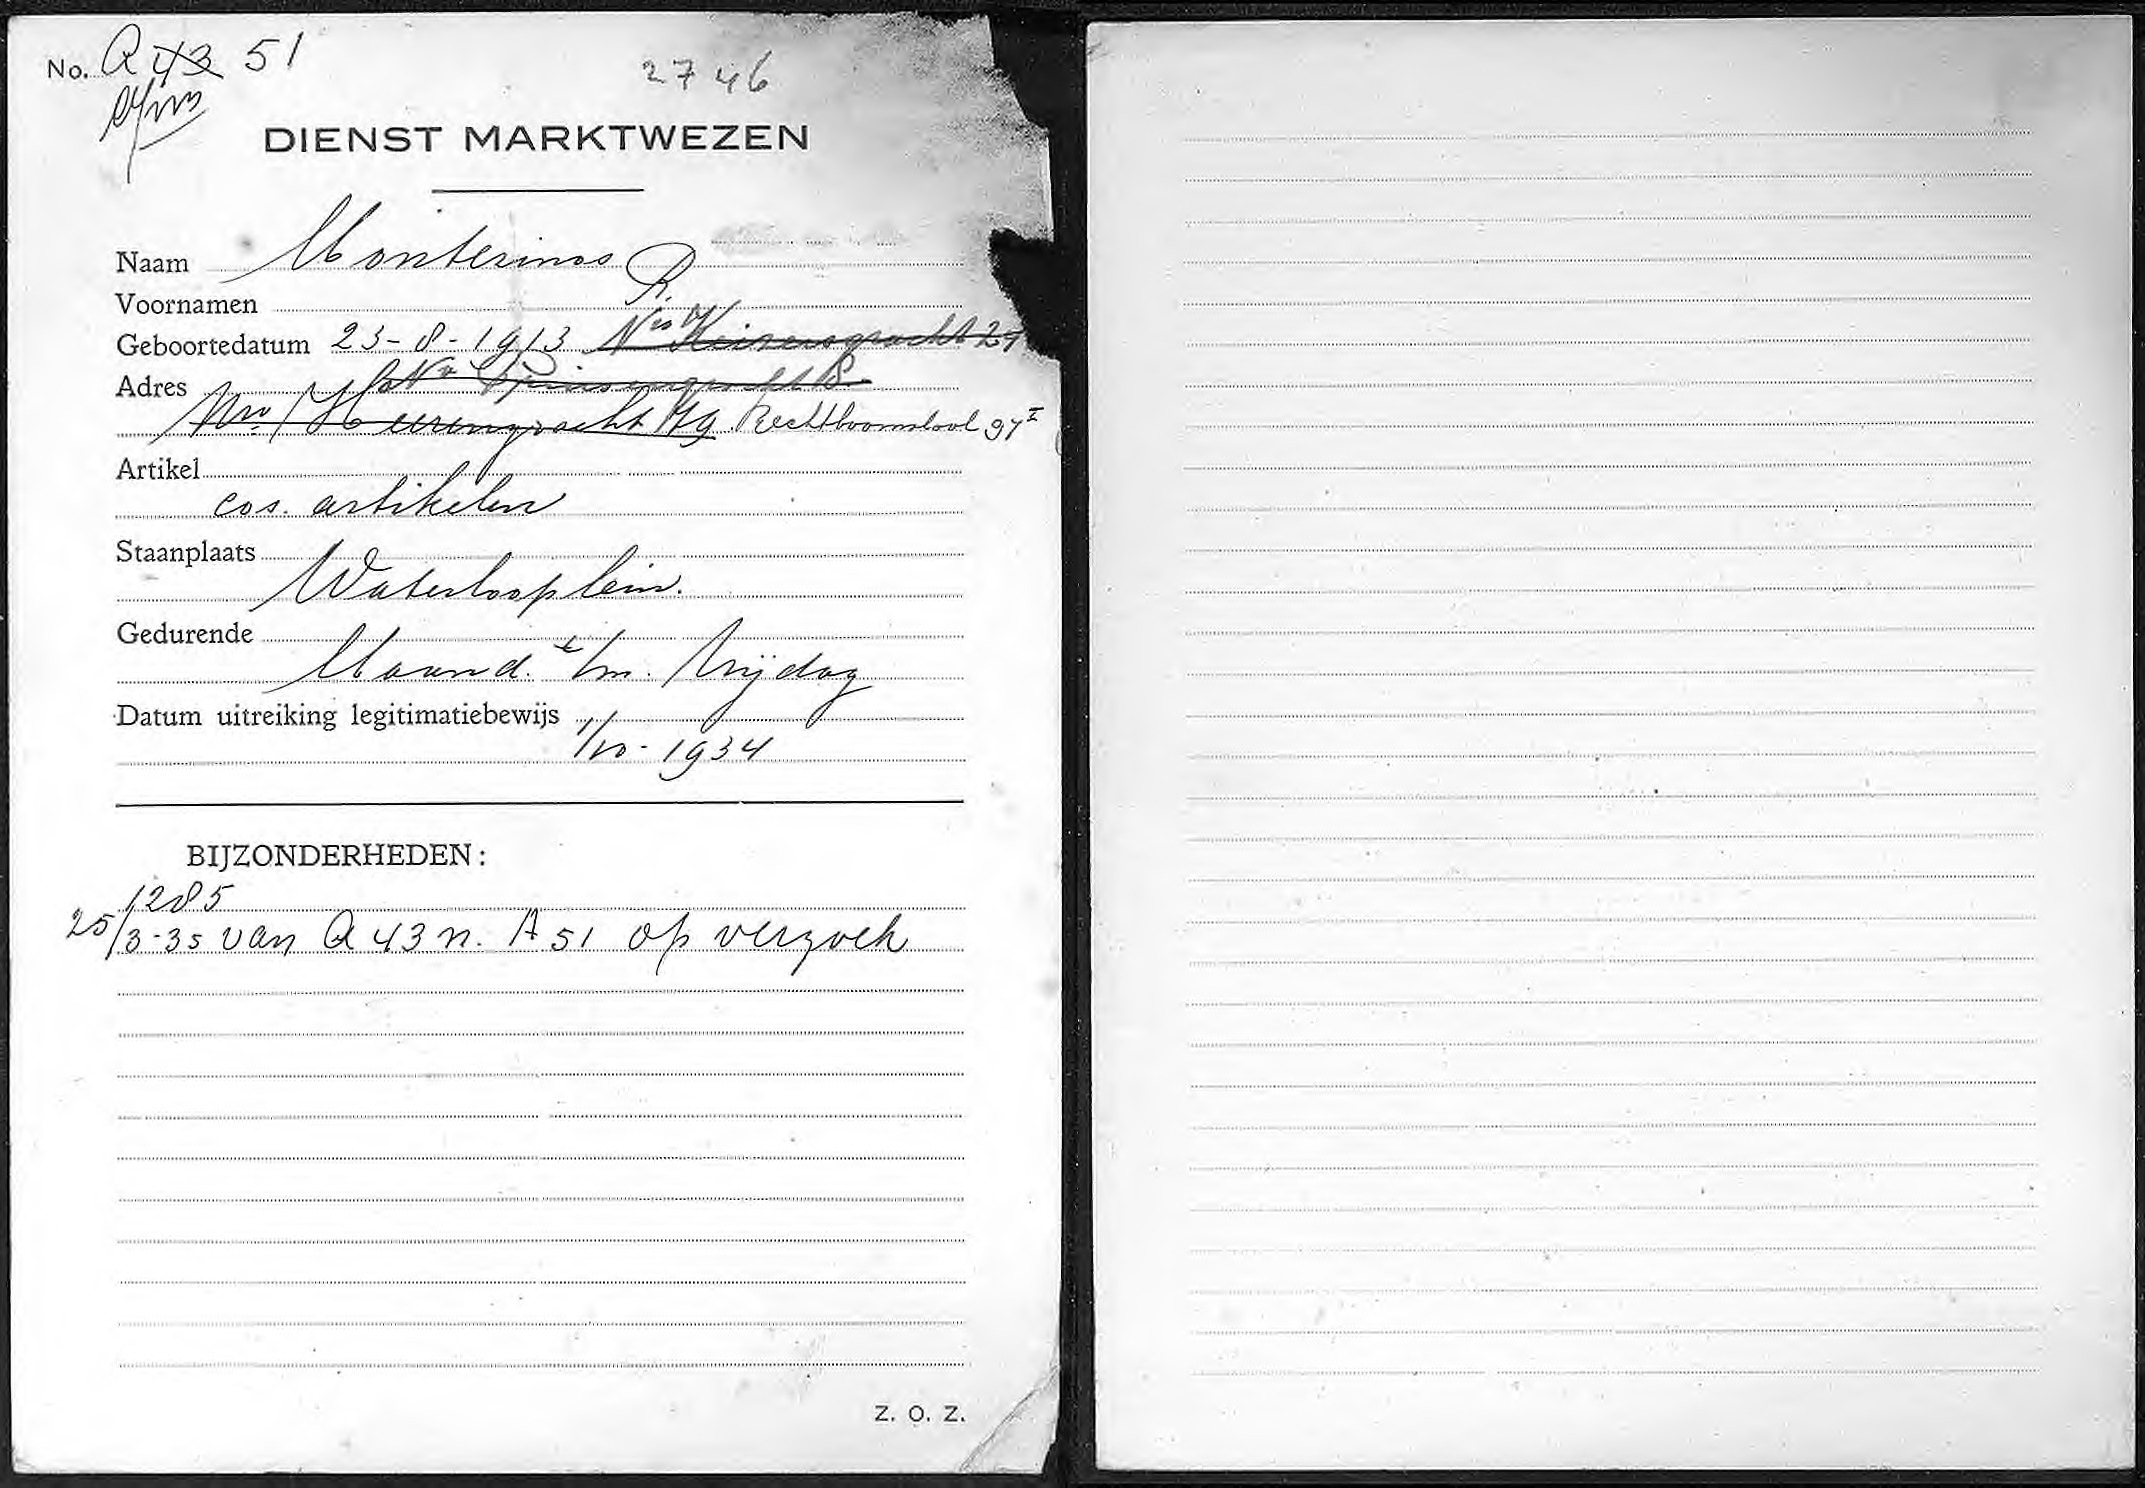 No. A 43 51
2746
DIENST MARKTWEZEN
Naam Monterinos R.
Voornamen
Geboortedatum 23-8-1913 Nwe Keizersgracht 24
Adres Nwe Prinsengracht 8
Nwe Heerengracht 49 Rechtboomsloot 97 I
Artikel
cos. artikelen
Staanplaats
Waterlooplein.
Gedurende
Maand. t/m. Vrijdag
Datum uitreiking legitimatiebewijs
1/10-1934
BIJZONDERHEDEN:
1285
25/3-35 van A 43 n. A 51 op verzoek
Z. O. Z.